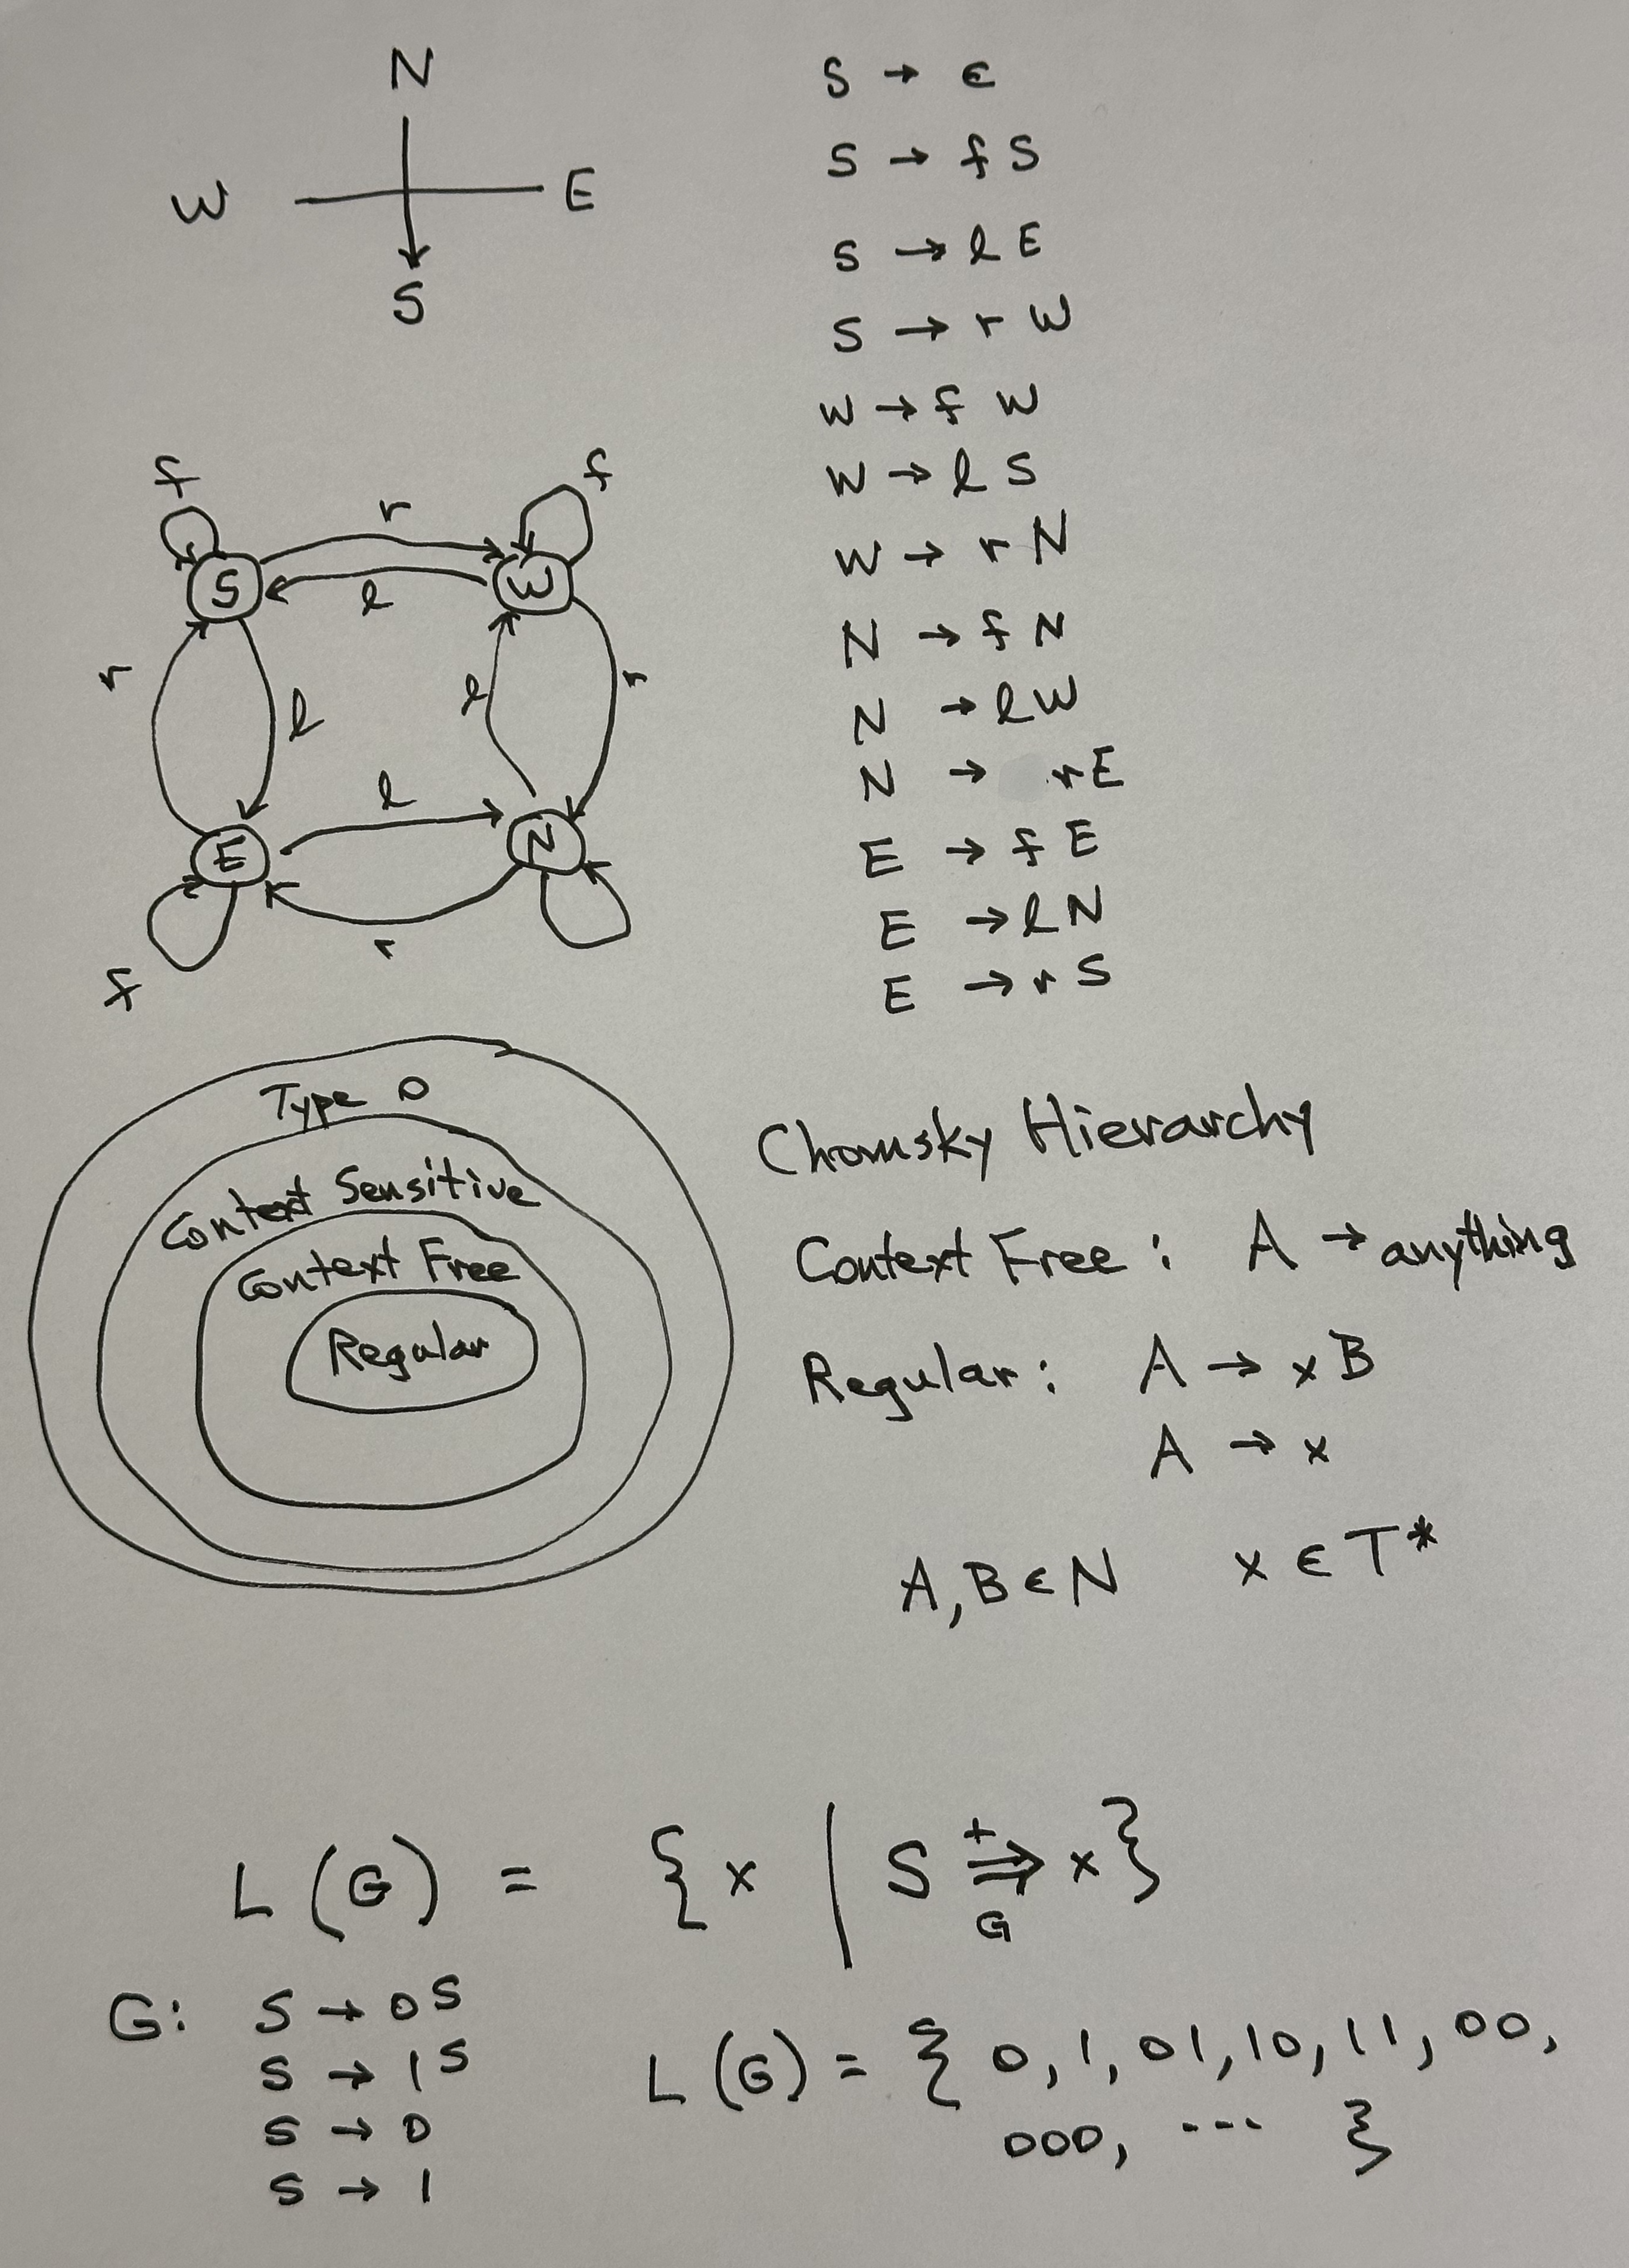 N
W E
S
S → ε
S → f S
S → l E
S → r W
W → f W
W → l S
W → r N
N → f N
N → l W
N → r E
E → f E
E → l N
E → r S
f f
r
S W
l
r l l r
l
E N
r
f
Type 0
Context Sensitive
Context Free
Regular
Chomsky Hierarchy
Context Free : A → anything
Regular : A → x B
A → x
A, B ∈ N x ∈ T*
L (G) = { x | S ⇒ x }
+
G
G: S → 0 S
S → 1 S
S → 0
S → 1
L (G) = { 0, 1, 01, 10, 11, 00,
000, --- }